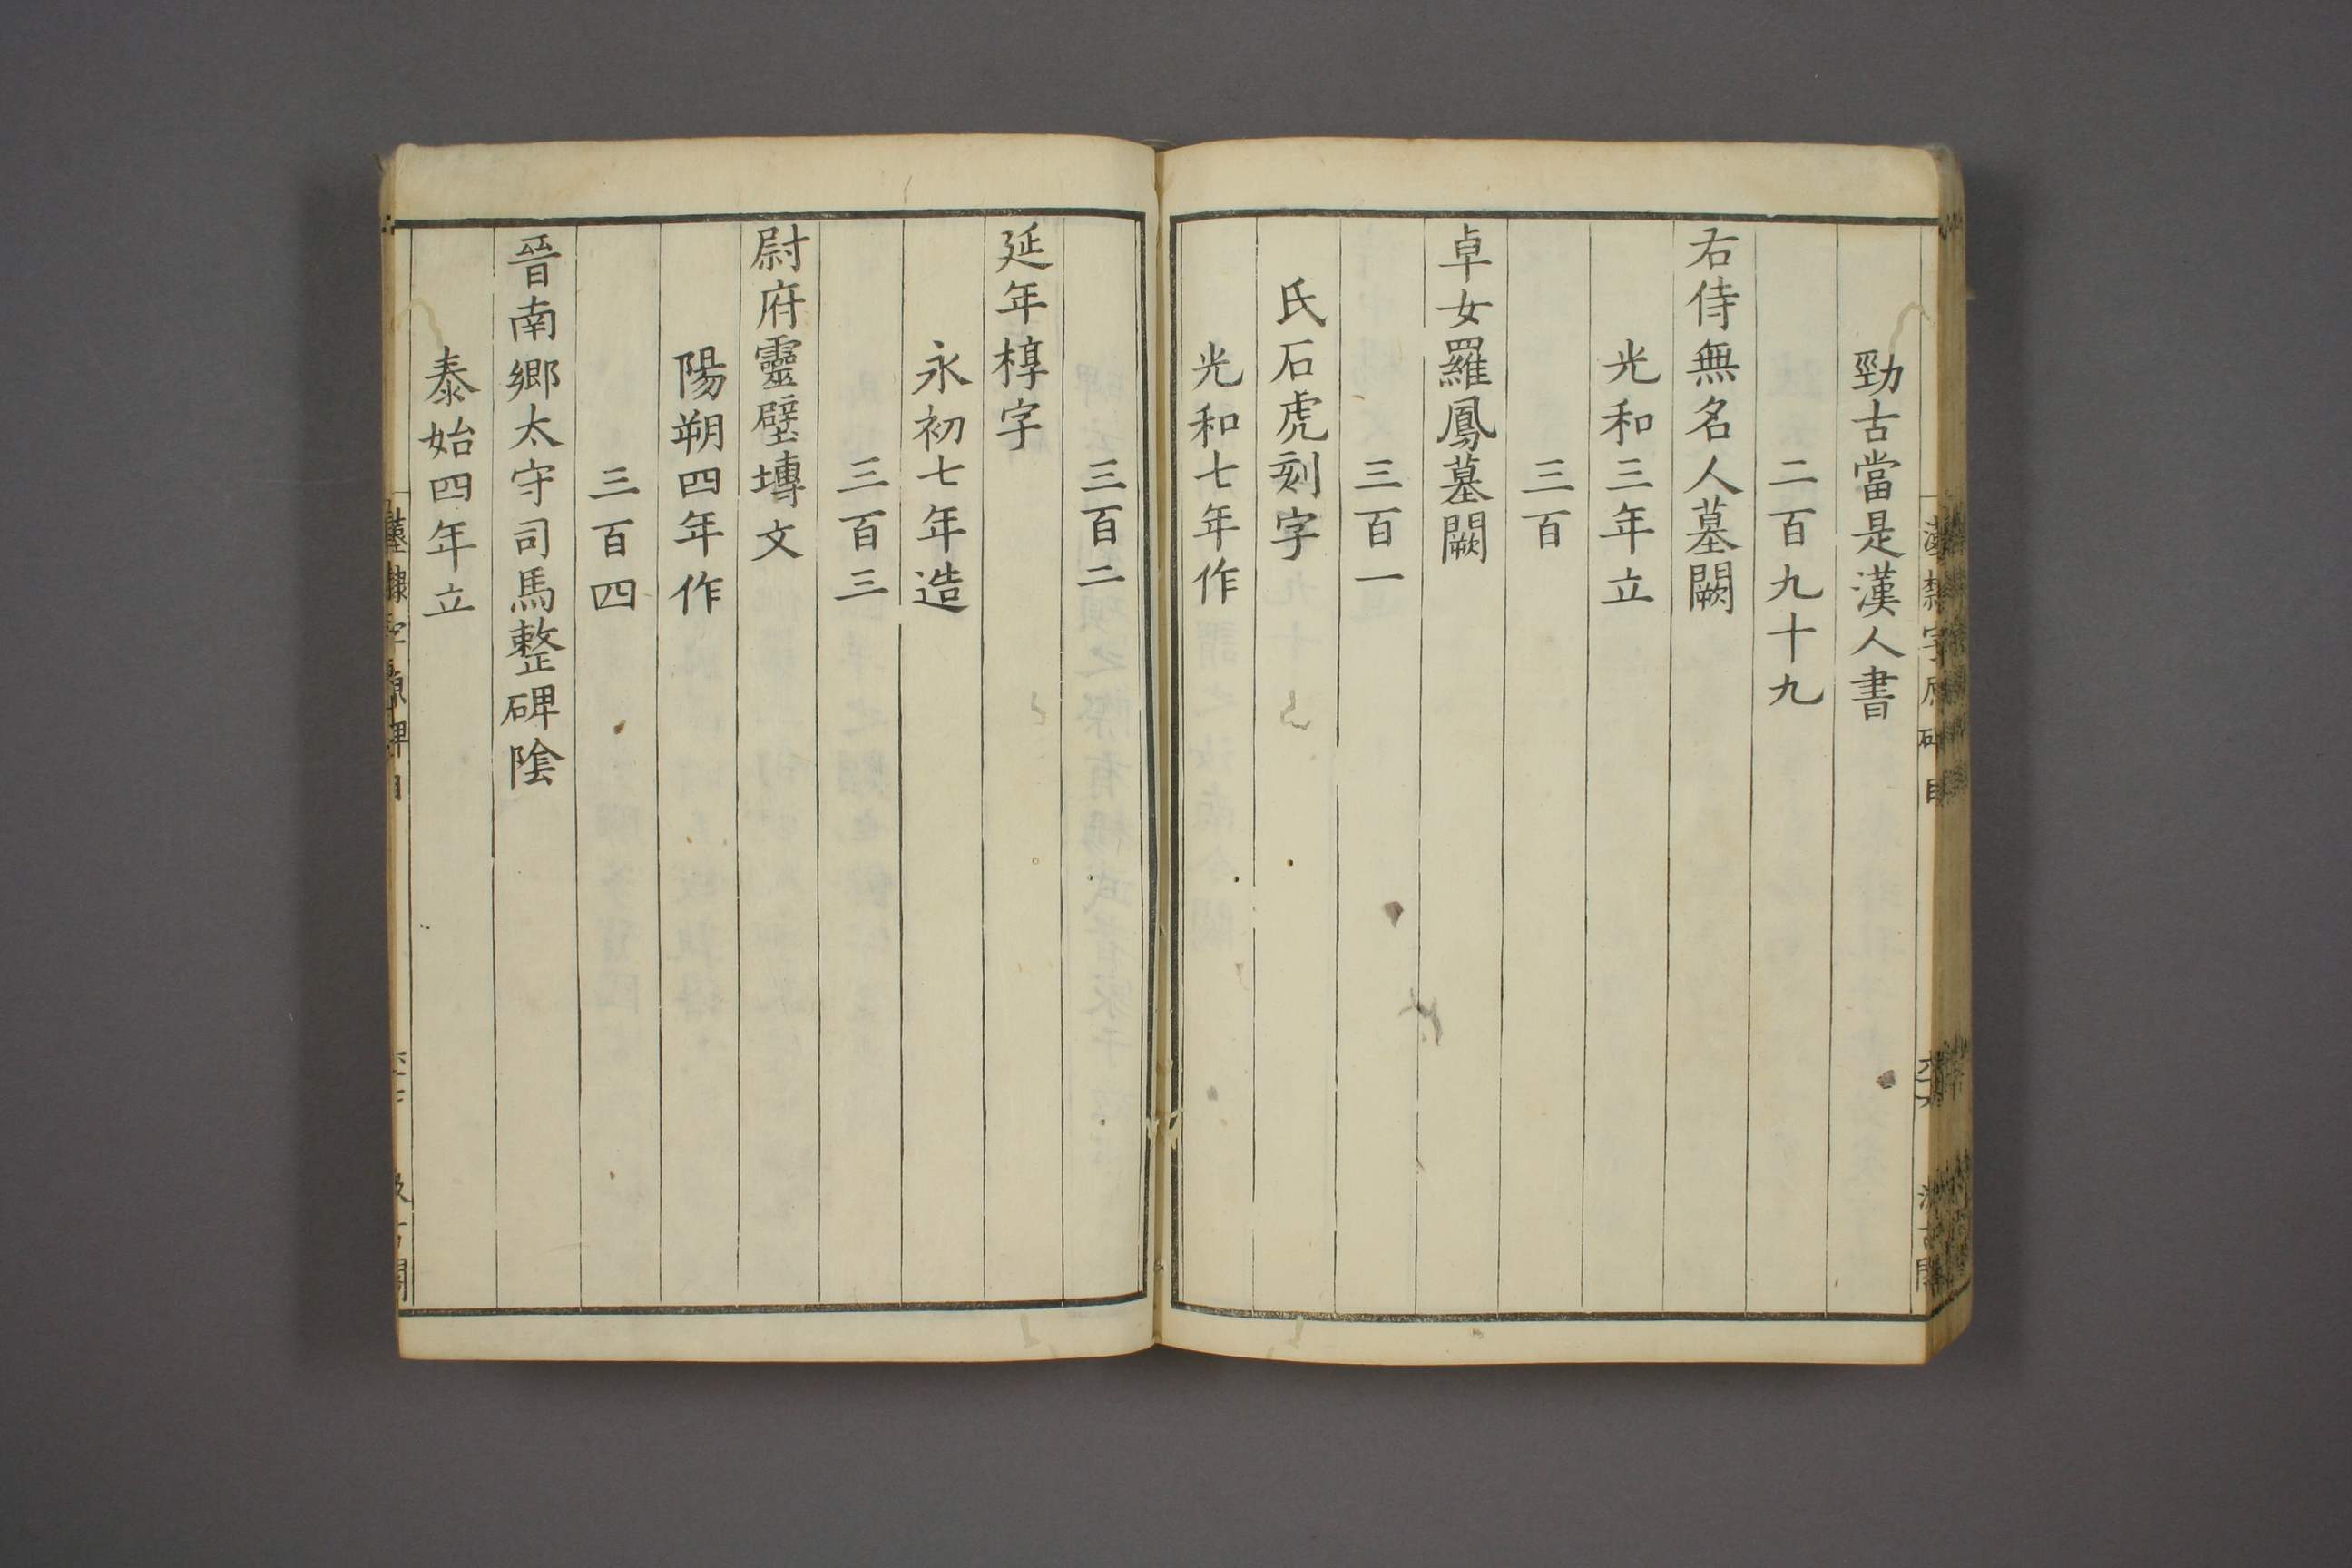 勁古當是漢人書
二百九十九
右侍無名人墓闕
光和三年立
三百
卓女羅鳳墓闕
三百一
氏石虎刻字
光和七年作
三百二
延年椁字
永初七年造
三百三
尉府靈壁塼文
陽朔四年作
三百四
晉南鄉太守司馬整碑陰
泰始四年立